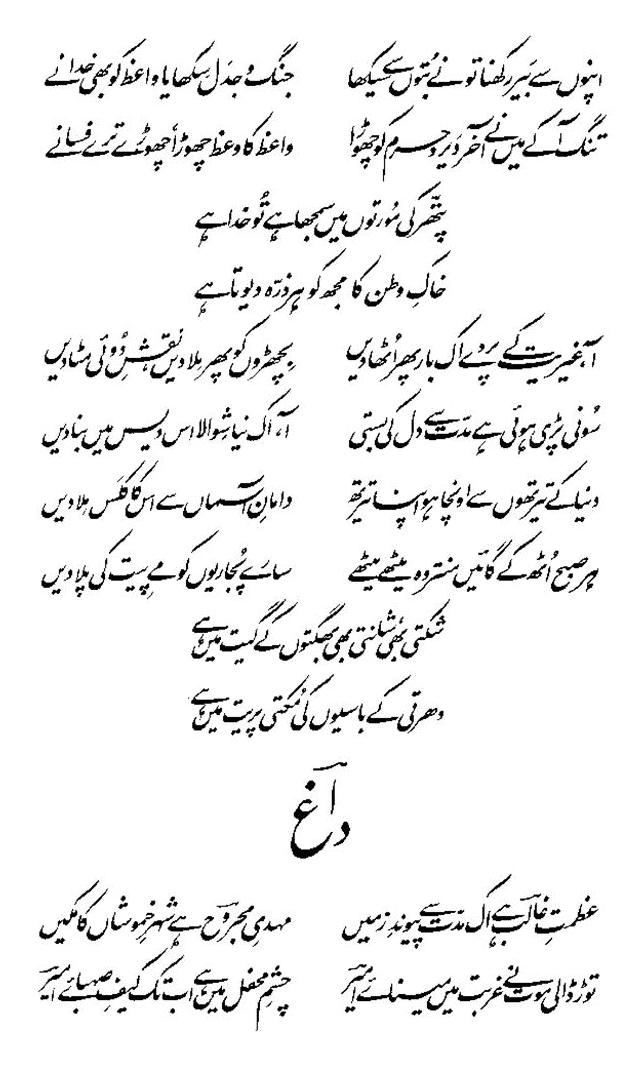 اپنوں سے بَیر رکھنا تو نے بُتوں سے سیکھا جنگ و جَدَل سِکھایا واعظ کو بھی خدا نے
تنگ آ کے میں نے آخر دَیر و حرم کو چھوڑا واعظ کا وعظ چھوڑا، چھوڑے ترے فسانے
پتّھر کی مُورتوں میں سمجھا ہے تُو خدا ہے
خاکِ وطن کا مجھ کو ہر ذرّہ دیوتا ہے
آ، غیریت کے پردے اک بار پھر اُٹھا دیں بچھڑوں کو پھر مِلا دیں نقشِ دُوئی مٹا دیں
سُونی پڑی ہوئی ہے مدّت سے دل کی بستی آ، اک نیا شِوالا اس دیس میں بنا دیں
دنیا کے تیرتھوں سے اونچا ہو اپنا تیرتھ دامانِ آسماں سے اس کا کلَس مِلا دیں
ہر صبح اُٹھ کے گائیں منتر وہ میٹھے میٹھے سارے پُجاریوں کو مے پیت کی پِلا دیں
شکتی بھی شانتی بھی بھگتوں کے گیت میں ہے
دھرتی کے باسیوں کی مُکتی پریت میں ہے
داغ
عظمتِ غالب ہے اک مدّت سے پیوندِ زمیں مہدیِ مجروح ہے شہرِ خموشاں کا مکیں
توڑ ڈالی موت نے غربت میں مینائے امیر چشمِ محفل میں ہے اب تک کیفِ صہبائے امیر